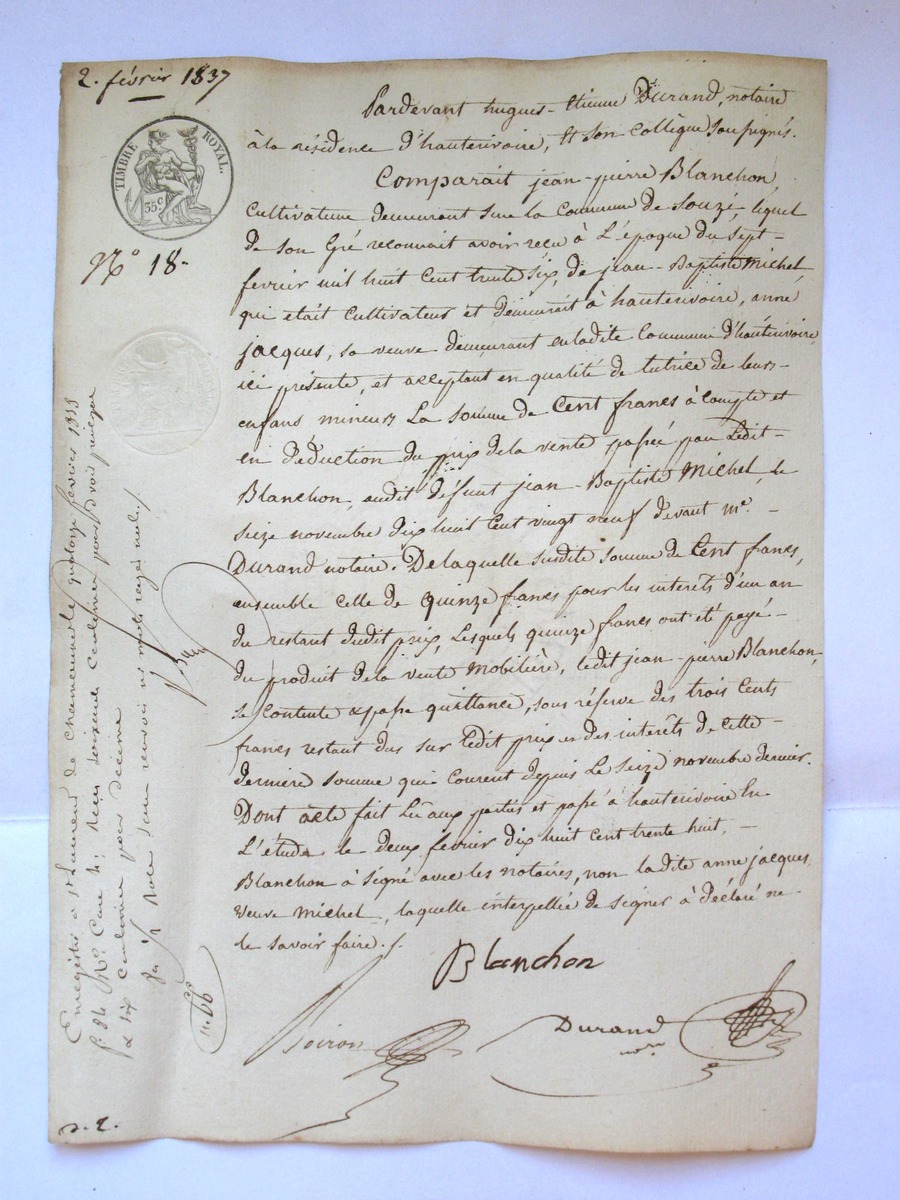 2. février 1837
TIMBRE ROYAL.
35 c.
N.o 18.
Pardevant hugues-Etienne Durand, notaire
à la résidence d'hauterivoire, Et son collègue soussignés.
Comparait jean-pierre Blanchon,
Cultivateur demeurant sur la Commune de Souzé, lequel
de son Gré reconnait avoir reçu à L'époque du Sept-
fevrier mil huit Cent trente six, de jean-Baptiste Michel,
qui était Cultivateur et Demeurait à hauterivoire, anne
jacques, sa veuve demeurant en ladite Commune d'hauterivoire,
ici présente, et acceptant en qualité de tutrice de leurs-
enfans mineurs La somme de Cent francs à Compte et
en Déduction du prix de la vente passée par Ledit-
Blanchon, audit défunt jean-Baptiste Michel, le
seize novembre dix huit Cent vingt neuf devant me. -
Durand notaire. De laquelle susdite somme de Cent francs,
ensemble celle de quinze francs pour les interêts d'un an
du restant dudit prix, Lesquels quinze francs ont été payé-
du produit de la vente Mobilière, ledit jean-pierre Blanchon,
se Contente & passe quittance, sous réserve des trois Cents
francs restant dus sur Ledit prix et des interêts de Cette-
dernière somme qui Courent depuis Le Seize novembre dernier.
Dont acte fait Lu aux parties et passé à hauterivoire En
L'étude le deux février Dix huit Cent trente huit, -
Blanchon à signé avec les notaires, non ladite anne jacques
veuve michel, laquelle interpellée de signer à Déclaré ne-
le savoir faire. /.
Blanchon
Poiron
Durand
nore
Enregistré à St Laurent de chamousset le quatorze fevrier 1838
f. 94 Ro. Case 4; Reçu soixante centimes pour droit principal
& six centimes pour décime